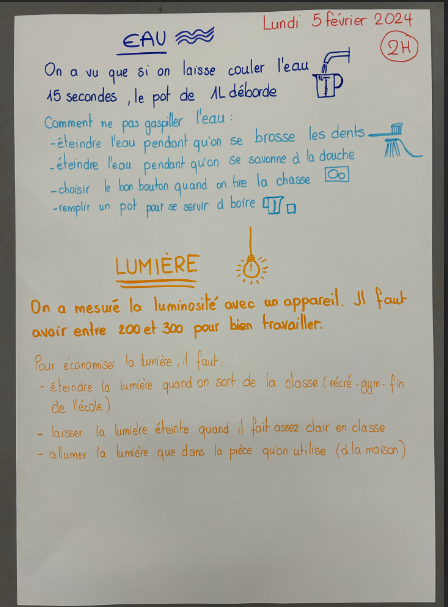 Lundi 5 février 2024
2H
EAU
On a vu que si on laisse couler l'eau
15 secondes, le pot de 1L déborde
Comment ne pas gaspiller l'eau :
-éteindre l'eau pendant qu'on se brosse les dents
-éteindre l'eau pendant qu'on se savonne à la douche
-choisir le bon bouton quand on tire la chasse
-remplir un pot pour se servir à boire
LUMIÈRE
On a mesuré la luminosité avec un appareil. Il faut
avoir entre 200 et 300 pour bien travailler.
Pour économiser la lumière, il faut:
- éteindre la lumière quand on sort de la classe (récré-gym-fin
de l'école)
- laisser la lumière éteinte quand il fait assez clair en classe
- allumer la lumière que dans la pièce qu'on utilise (à la maison)